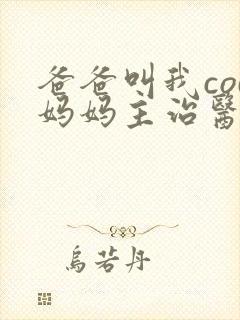 爸爸叫我co
妈妈主治醫
烏若丹